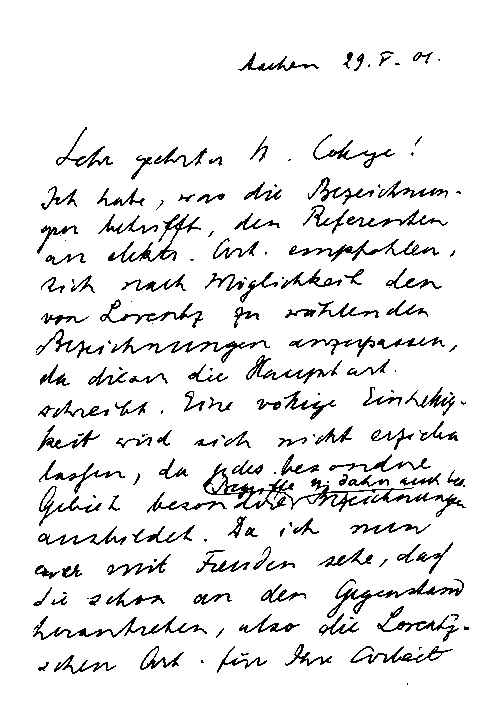 Aachen 29.V.01.
Sehr geehrter H. College!
Ich habe, was die Bezeichnun-
gen betrifft, den Referenten
an elektr. Art. empfohlen,
sich nach Möglichkeit den
von Lorentz zu wählenden
Bezeichnungen anzupassen,
da dieser die Hauptart.
schreibt. Eine völlige Einhellig-
keit wird sich nicht erzielen
lassen, da jedes besondre
Begriffe u. daher auch bes.
Gebiet besondre Bezeichnungen
ausbildet. Da ich nun
aber mit Freuden sehe, daß
Sie schon an den Gegenstand
herantreten, also die Lorentz-
schen Art. für Ihre Arbeit